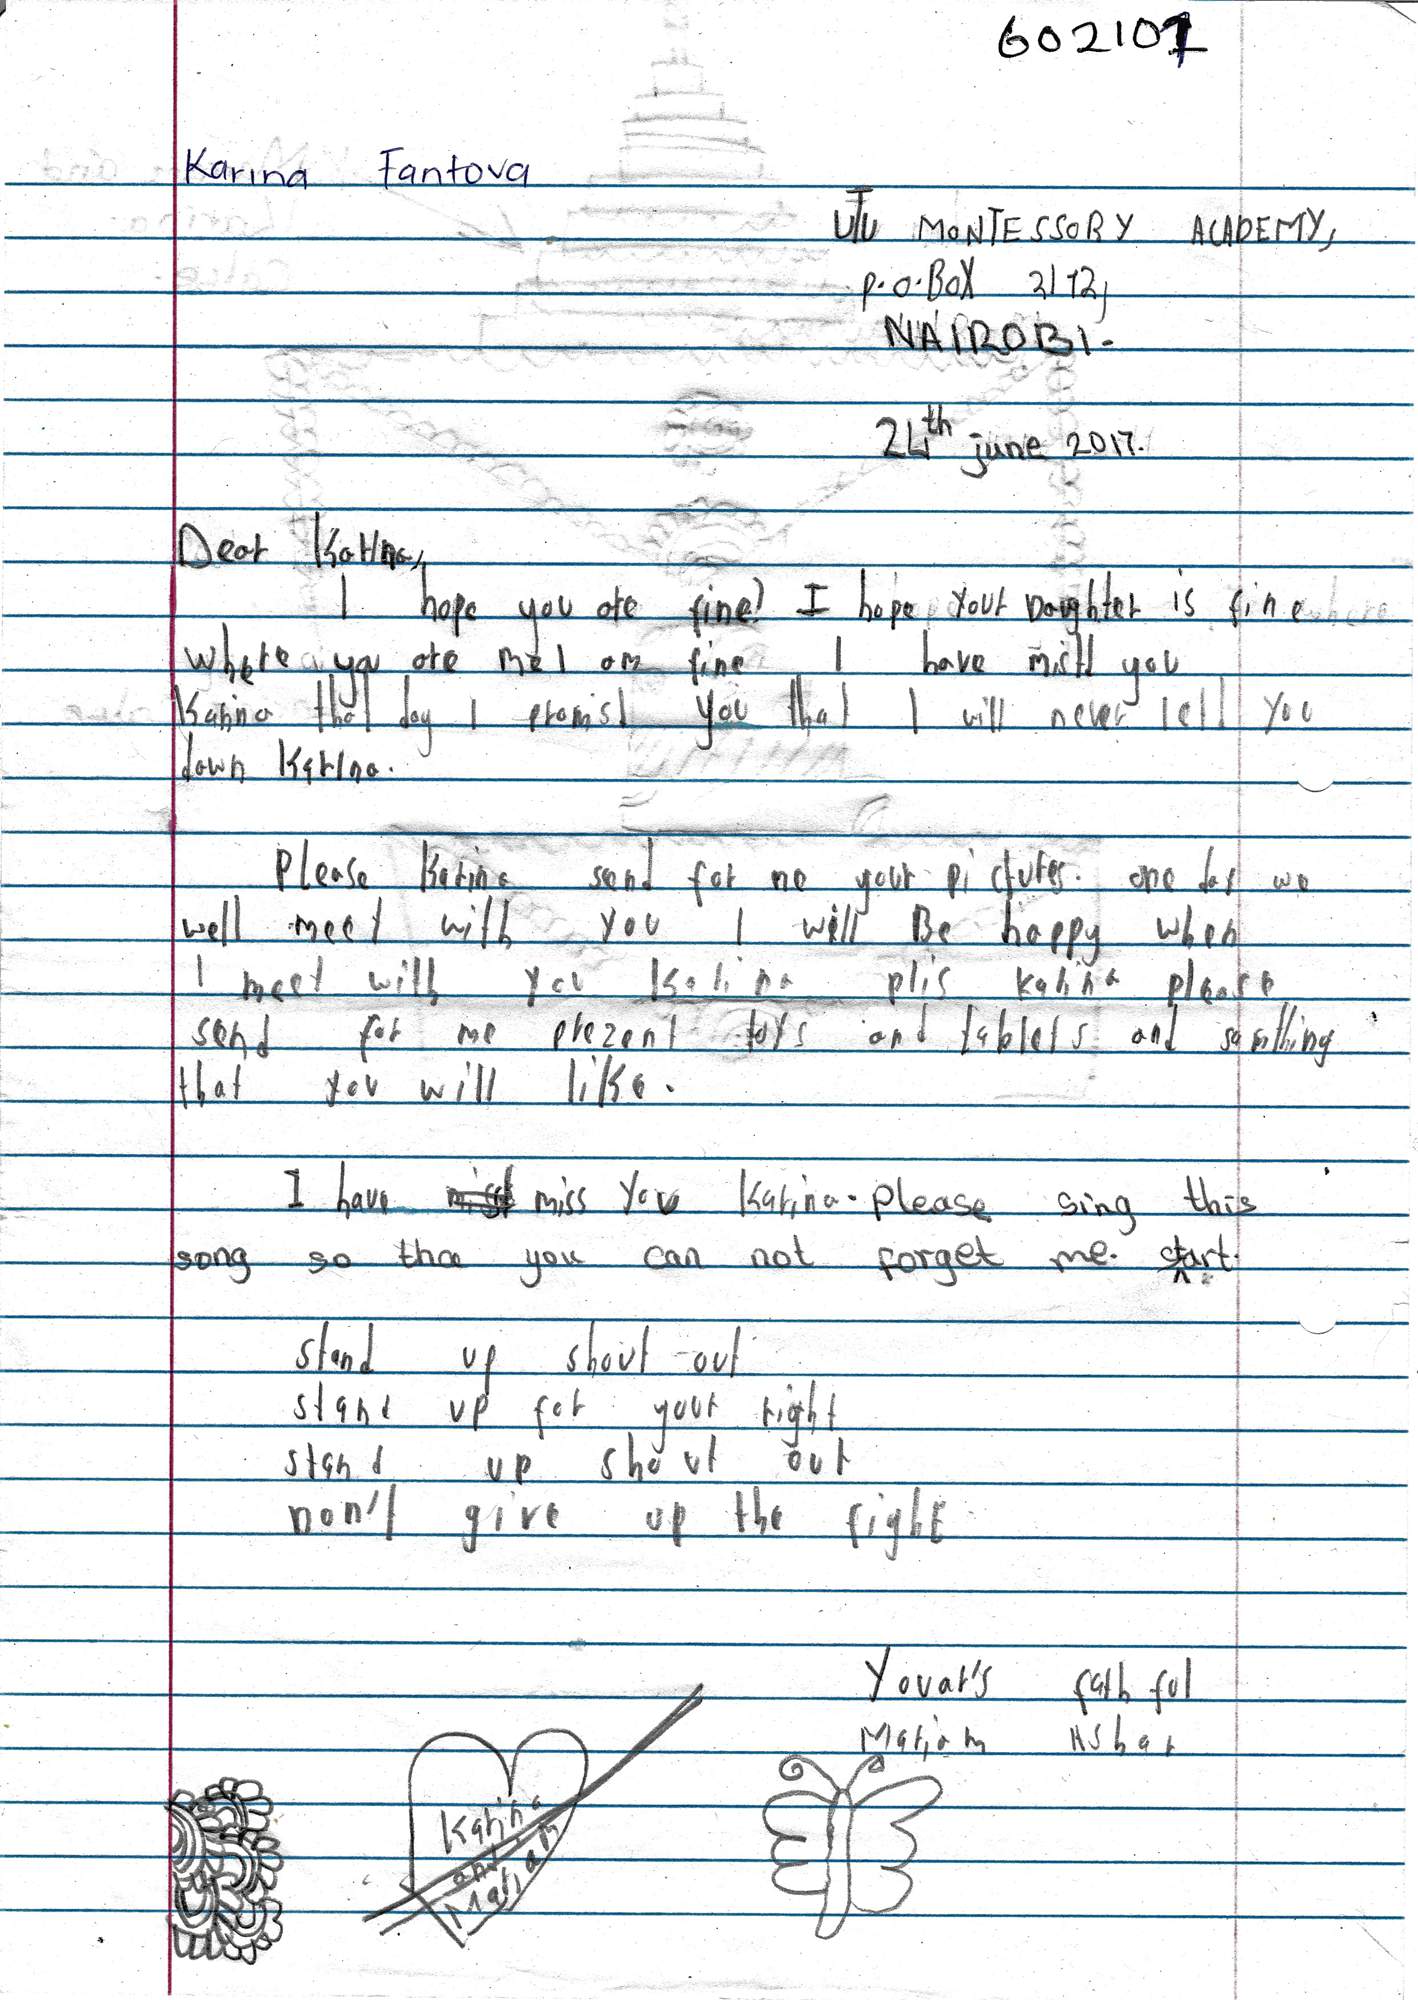 602101
Karina Fantova
UTU MONTESSORY ACADEMY,
P.O.BOX 2172,
NAIROBI.
24th june 2017.
Dear Karina,
I hope you are fine? I hope your Daughter is fine
where you are me I am fine I have mist you
Karina that day I promist you that I will never lett you
down Karina.
Please Karina send for me your pictures. one day we
well meet with you I will Be happy when
I meet with you Karina plis karina please
send for me prezent toys and tablets and somthing
that you will like.
I have miss you Karina. please sing this
song so that you can not forget me. start.
stand up shout out
stand up for your right
stand up shout out
non't give up the fight
Yovar's fathful
Mariam Ashar
Karina
and
Mariam